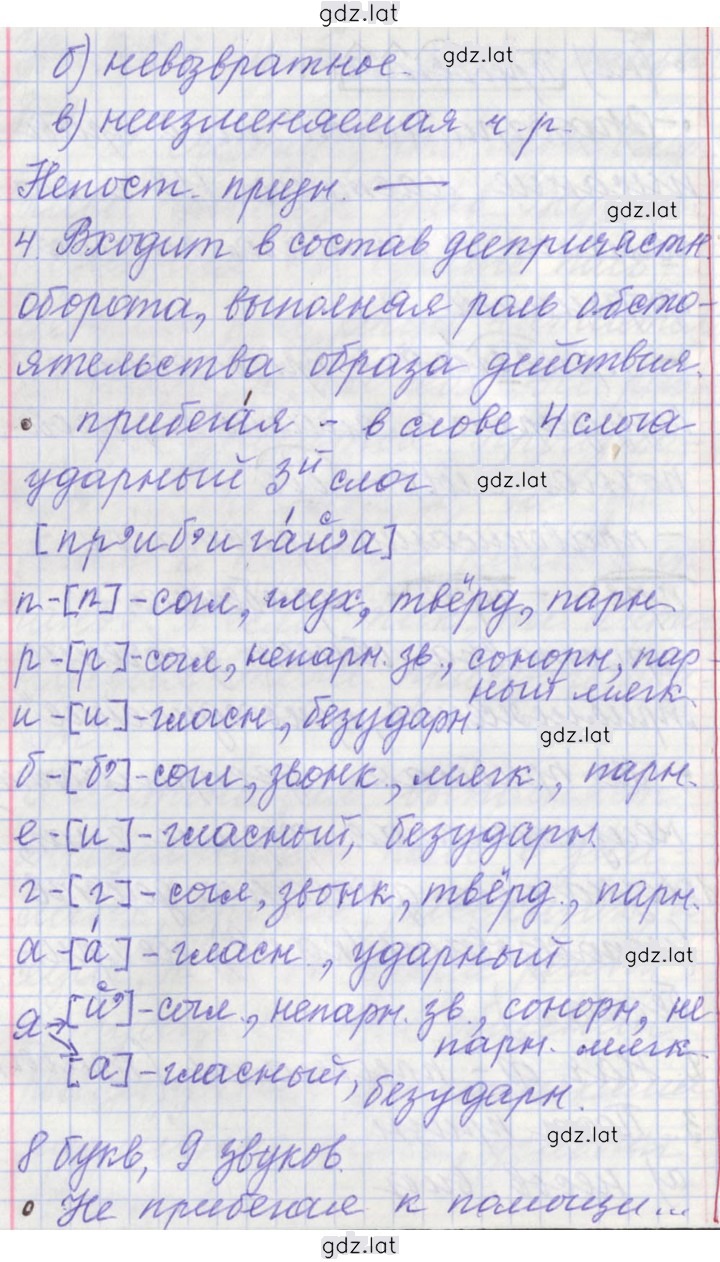 gdz.lat
б) невозвратное. gdz.lat
в) неизменяемая ч. р.
Непост. призн. —
gdz.lat
4. Входит в состав деепричастн.
оборота, выполняя роль обсто-
ятельства образа действия.
• прибега́я - в слове 4 слога
ударный 3ий слог gdz.lat
[пр'иб'ига́й'а]
п-[п]-согл, глух, твёрд, парн.
р-[р']-согл, непарн. зв., сонорн, пар-
ный мягк.
и-[и]-гласн, безударн.
gdz.lat
б-[б']-согл, звонк., мягк., парн.
е-[и]-гласный, безударн.
г-[г]-согл, звонк, твёрд., парн.
а-[а́]-гласн, ударный gdz.lat
я [й']-согл., непарн. зв., сонорн, не
парн. мягк.
[а]-гласный, безударн.
gdz.lat
8 букв, 9 звуков.
• Не прибегая к помощи...
gdz.lat